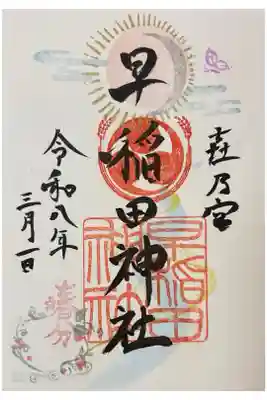 乃宮
早稲田神社
早稲田
神社
令和八年
三月一日